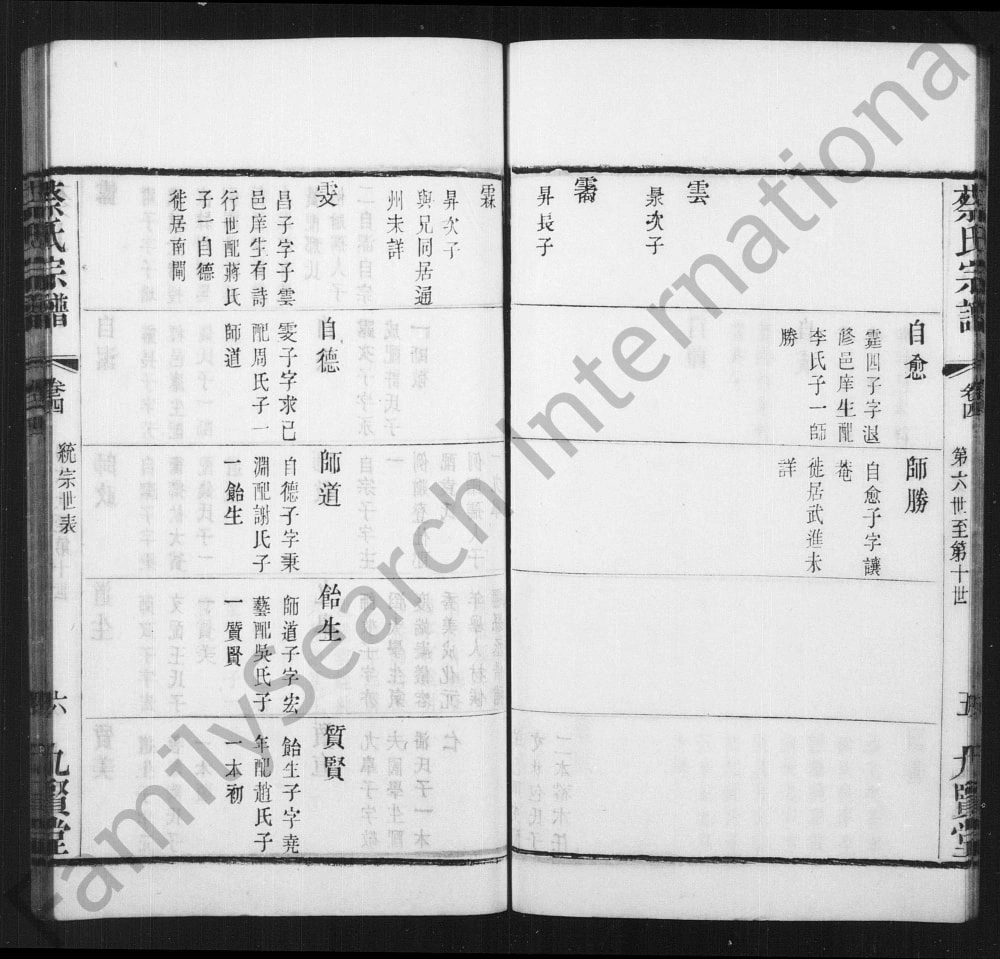 蔡氏宗譜
卷四
第六世至第十世
五
九賢堂
自愈
霆四子字退
菴邑庠生配
李氏子一師
勝
師勝
自愈子字讓
菴
徙居武進未
詳
雲
景次子
霱
昇長子
霖
昇次子
與兄同居通
州未詳
雯
昌子字子雲
邑庠生有詩
行世配蔣氏
子一自德
徙居南閘
自德
雯子字求己
配周氏子一
師道
師道
自德子字秉
淵配謝氏子
一飴生
飴生
師道子字宏
藝配吳氏子
一質賢
質賢
飴生子字堯
年配趙氏子
一本初
蔡氏宗譜
卷四
統宗世表
六
九賢堂
FamilySearch International